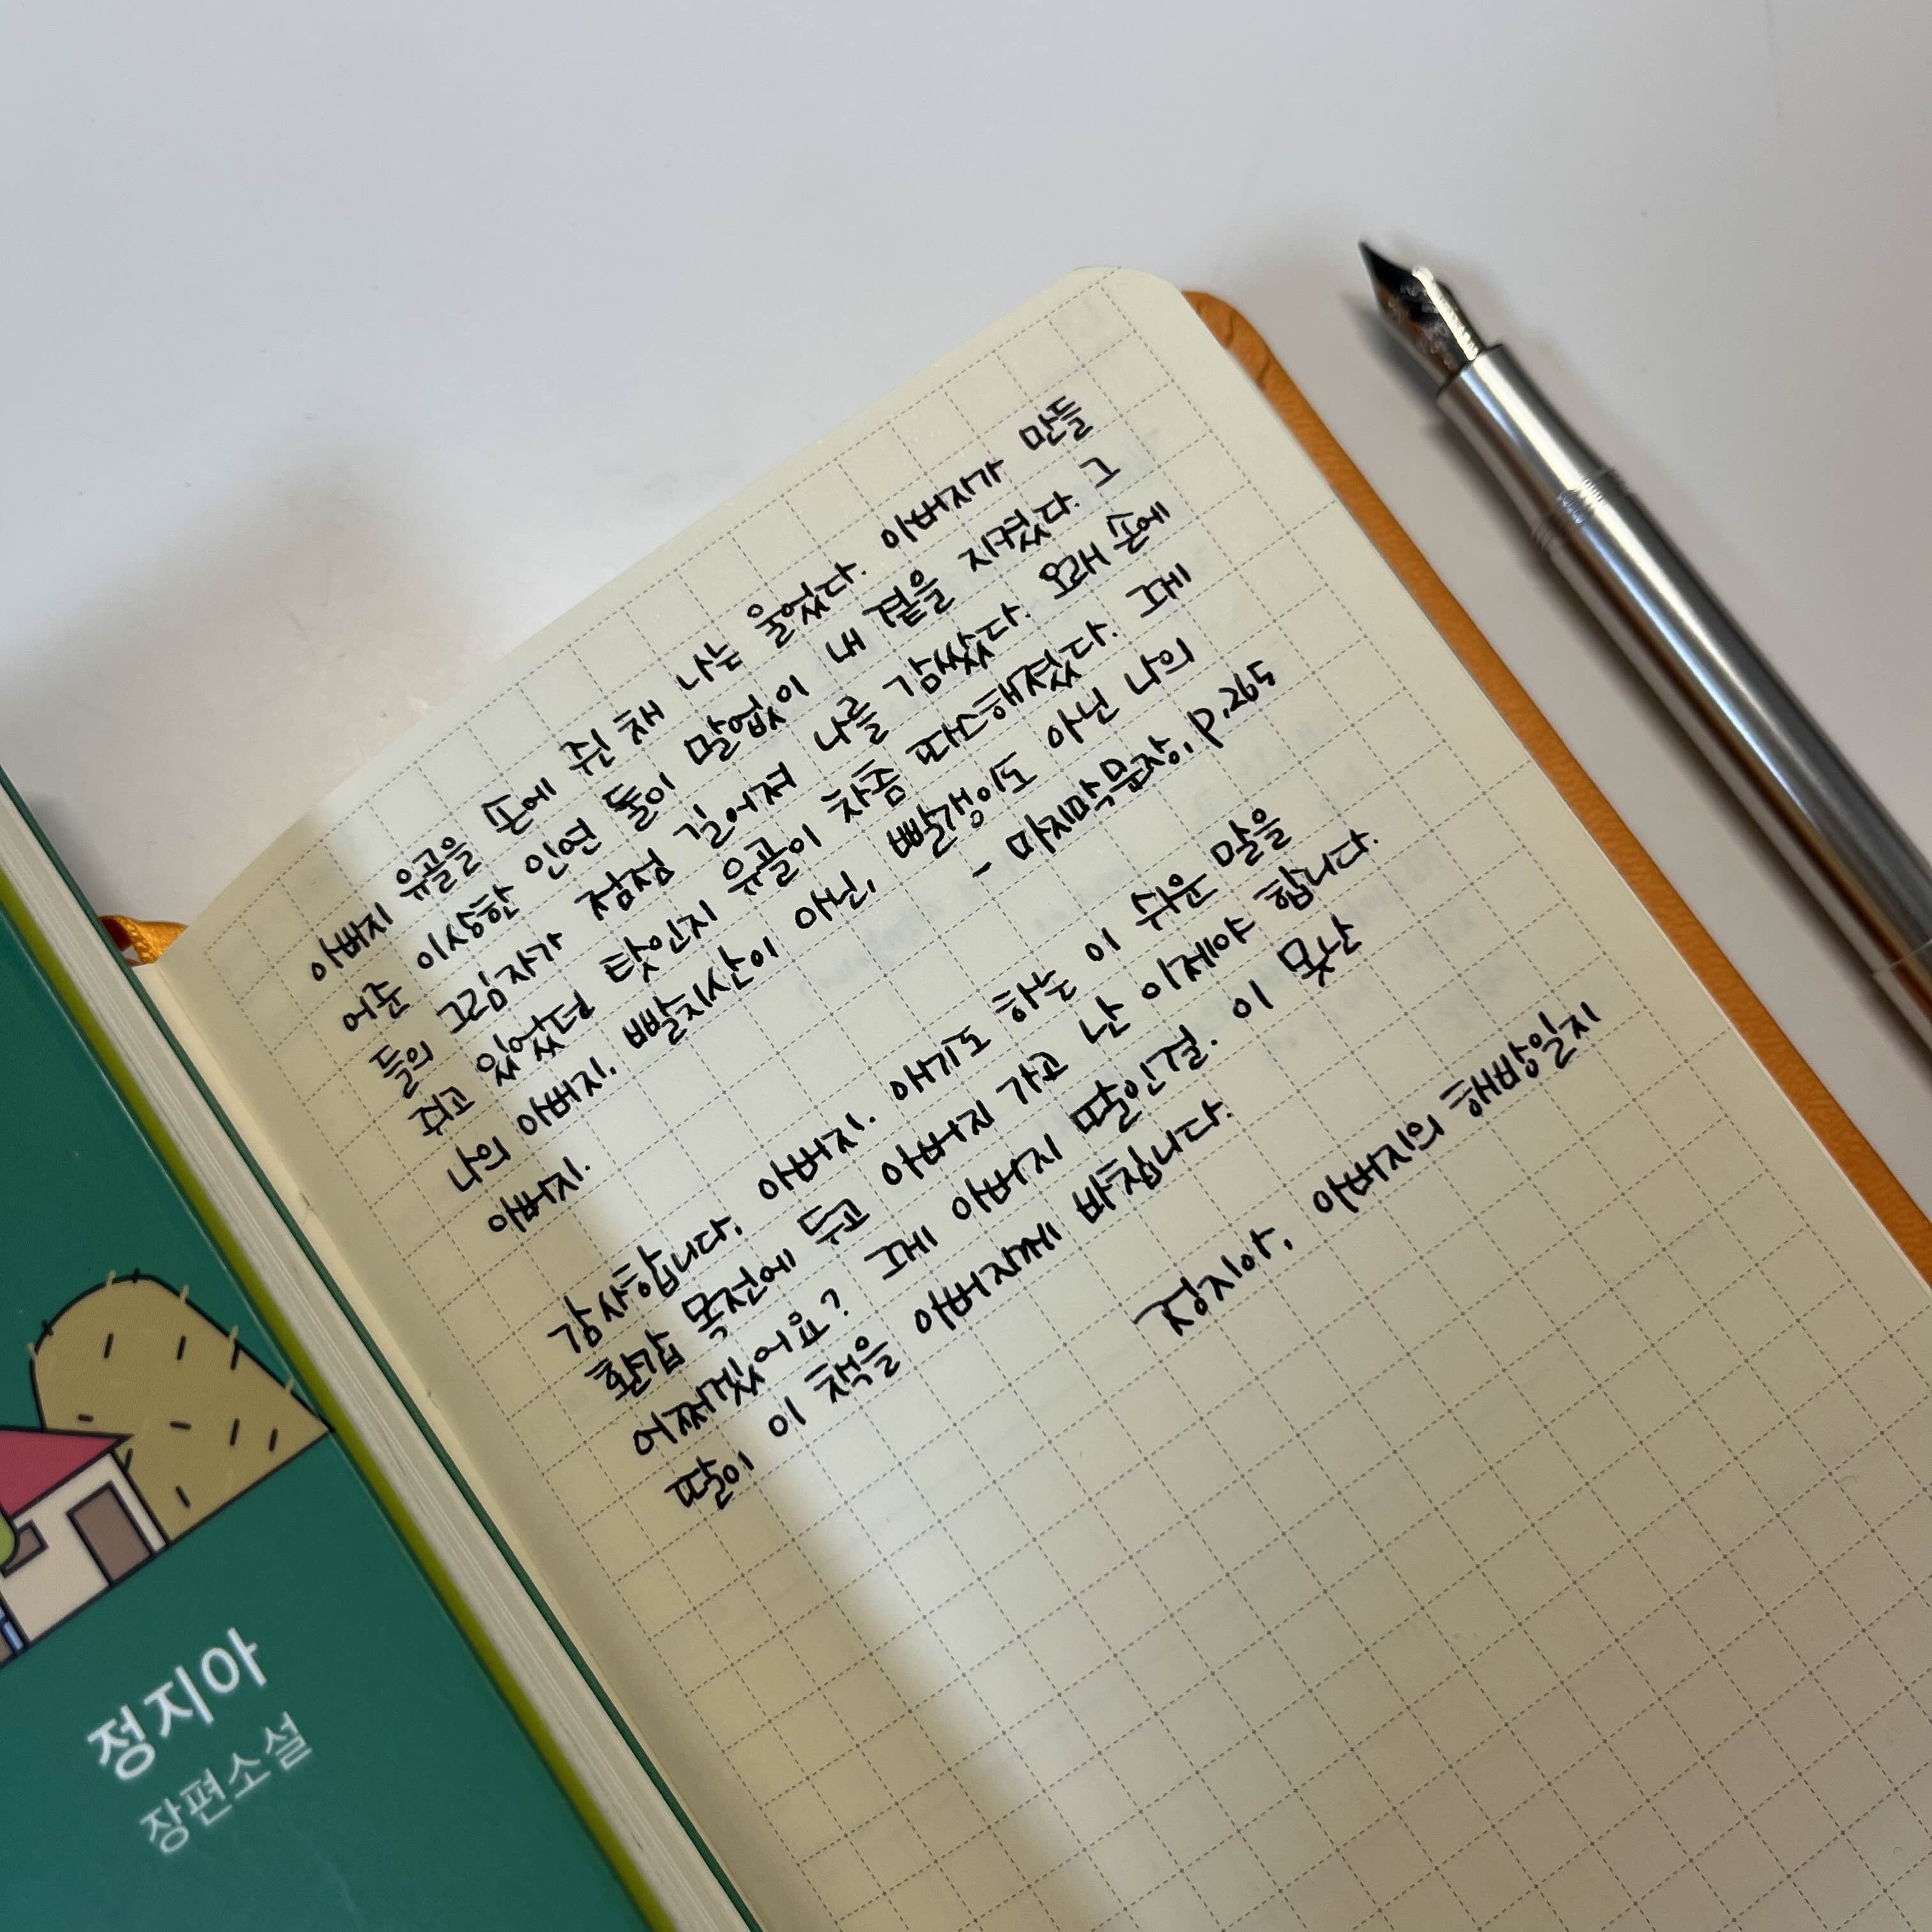 아버지 유골을 손에 쥔 채 나는 울었다. 아버지가 만들
어준 이상한 인연 둘이 말없이 내 곁을 지켰다. 그
들의 그림자가 점점 길어져 나를 감쌌다. 오래 손에
쥐고 있었던 탓인지 유골이 차츰 따스해졌다. 그게
나의 아버지. 빨치산이 아닌, 빨갱이도 아닌 나의
아버지.
- 마지막문장, p.265
감사합니다, 아버지. 애기도 하는 이 쉬운 말을
환갑 목전에 두고 아버지 가고 난 이제야 합니다.
어쩌겠어요? 그게 아버지 딸인걸. 이 못난
딸이 이 책을 아버지께 바칩니다.
정지아, 아버지의 해방일지
정지아
장편소설